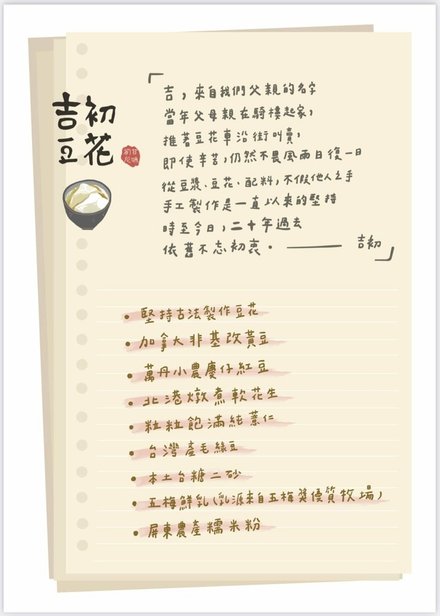 吉初
豆花
「吉，來自我們父親的名字
當年父母親在騎樓起家，
推著豆花車沿街叫賣，
即使辛苦，仍然不畏風雨日復一日
從豆漿、豆花、配料，不假他人之手
手工製作是一直以來的堅持
時至今日，二十年過去
依舊不忘初衷。——— 吉初」
• 堅持古法製作豆花
• 加拿大非基改黃豆
• 萬丹小農慶仔紅豆
• 北港燉煮軟花生
• 粒粒飽滿純薏仁
• 台灣產毛綠豆
• 本土台糖二砂
• 五梅鮮乳(乳源來自五梅獎優質牧場)
• 屏東農產糯米粉